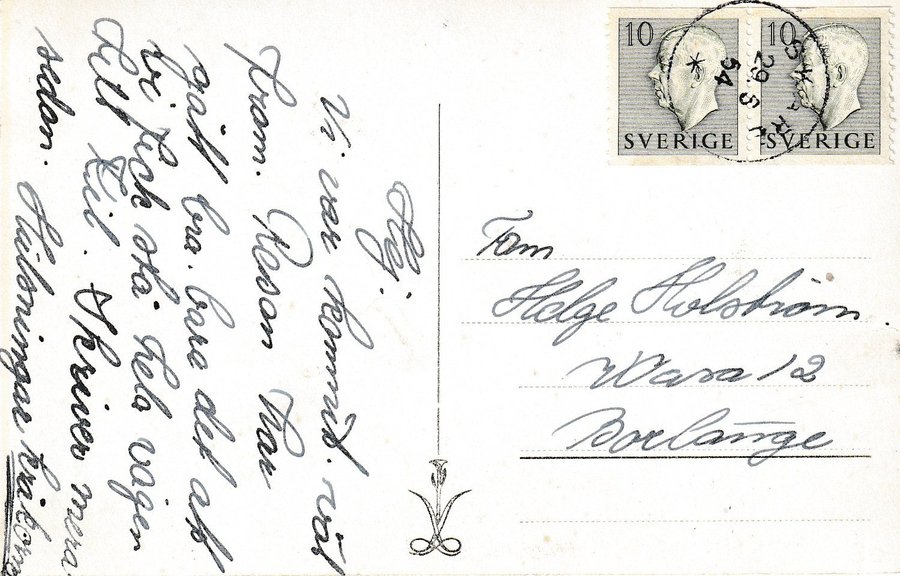 Hej.
Vi var kommit. väl
fram. Resan har
gått bra. bara det att
vi fick stå hela vägen
till Kil. Skriver mera
sedan. Hälsningar
10 10
SVERIGE SVERIGE
29 5
54
Fam
Helge Holström.
Wasa 12
Borlänge